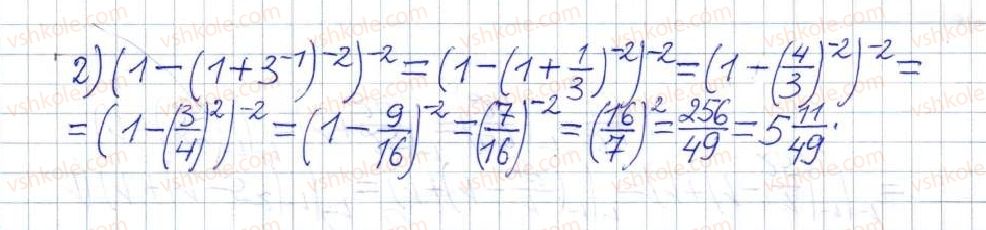 2) (1 − (1 + 3⁻¹)⁻²)⁻² = (1 − (1 + 1/3)⁻²)⁻² = (1 − (4/3)⁻²)⁻² =
= (1 − (3/4)²)⁻² = (1 − 9/16)⁻² = (7/16)⁻² = (16/7)² = 256/49 = 5 11/49.